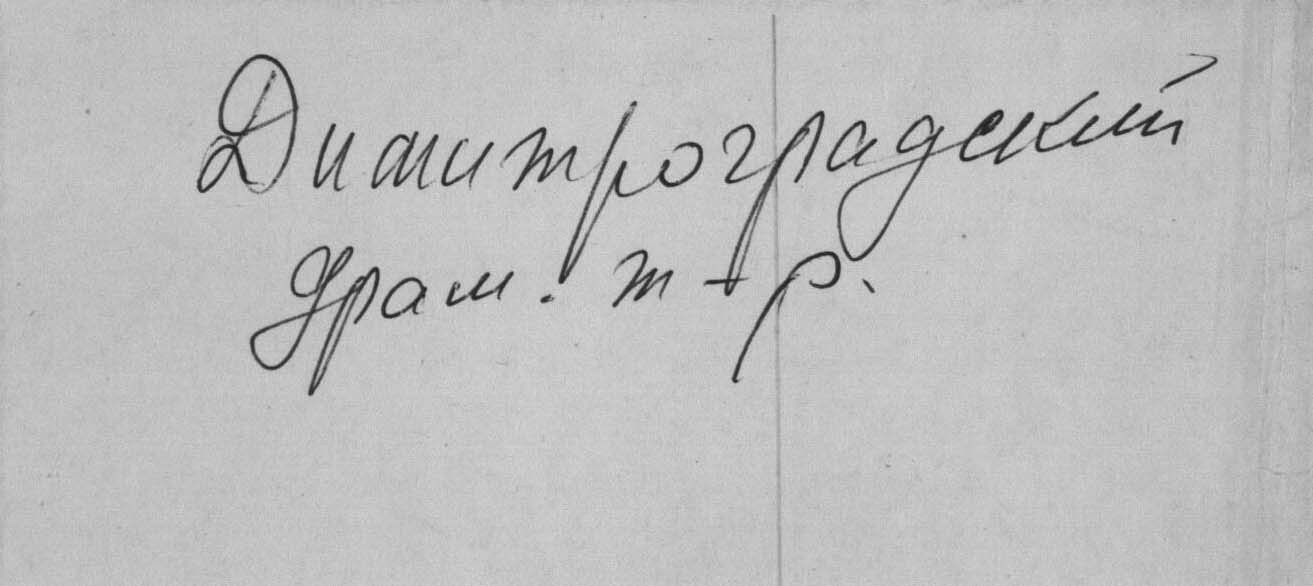 Димитроградский
драм. т-р.